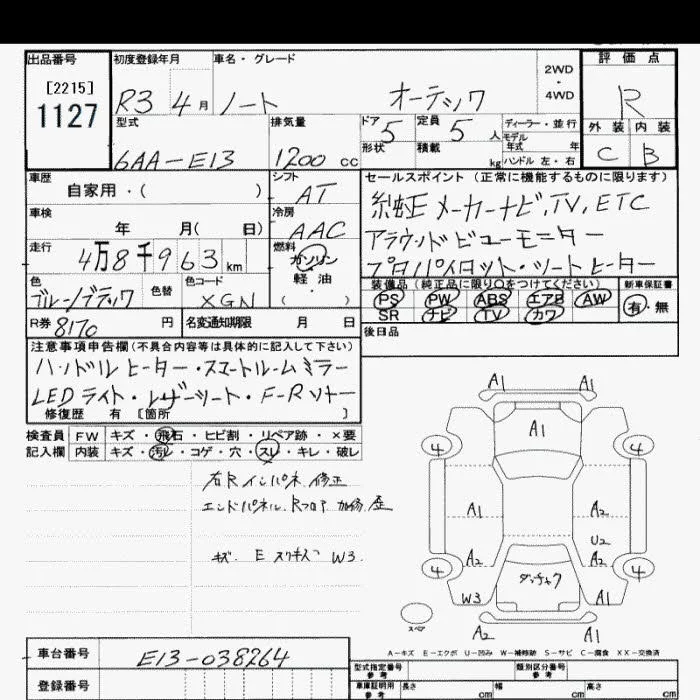 出品番号
[2215]
1127
初度登録年月
R3 4 月
車名・グレード
ノート オーテック
2WD
・
4WD
評価点
R
外装 内装
C B
型式
6AA-E13
排気量
1200 cc
ドア 5
定員 5 人
形状
積載 kg
ディーラー・並行
モデル
年式 年
ハンドル 左・右
車歴
自家用・( )
シフト
AT
車検
年 月( 日)
冷房
AAC
走行
4万8千963 km
燃料
ガソリン
軽油
( ・ )
色
ブルー/ブラック
色替
色コード
XGN
R券 8170 円
名変通知期限 月 日
セールスポイント(正常に機能するものに限ります)
純正メーカーナビ,TV,ETC
アラウンドビューモニター
プロパイロット・シートヒーター
装備品(純正品に限り○をつけてください)
PS PW ABS エアB AW
SR ナビ TV カワ
新車保証書
有・無
後日品
注意事項申告欄(不具合内容等は具体的に記入して下さい)
ハンドルヒーター・スマートルームミラー
LEDライト・レザーシート・F-Rソナー
修復歴 有 [箇所 ]
検査員
記入欄
FW キズ・飛石・ヒビ割・リペア跡・×要
内装 キズ・汚レ・コゲ・穴・スレ・キレ・破レ
右Rインパネ 修正
エンドパネル、Rフロア 加修 歪
キズ. E スリキズ W3
A1 A1
A1
4 4
A1 A2
U2
A2 A2
4 4
ダッチャク
W3 A1
スペア
A2 A1
A-キズ E-エクボ U-凹み W-補修跡 S-サビ C-腐食 XX-交換済
車台番号
E13-038264
登録番号
型式指定番号
参考
類別区分番号
参考
車庫証明用
参考
長さ cm 幅 cm 高さ cm